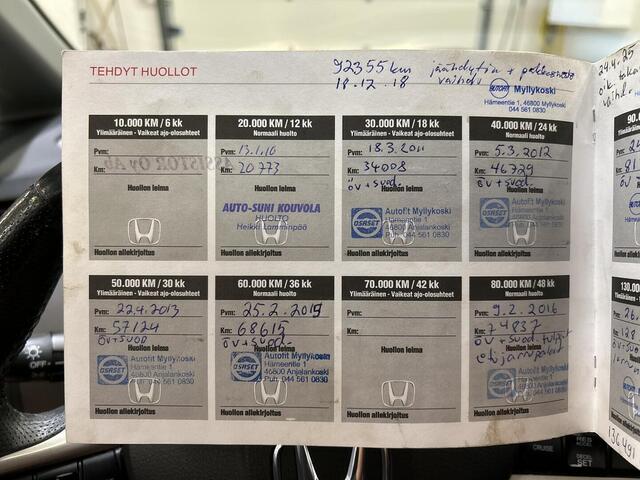 TEHDYT HUOLLOT
92355km jäähdytin + pakkasneste
18.12.18 vaihdu
Myllykoski
Hämeentie 1, 46800 Myllykoski
044 561 0830
24.4.25
10.000 KM / 6 kk
Ylimääräinen - Vaikeat ajo-olosuhteet
Pvm:
Km:
ASSISTOR Oy Ab
Huollon leima
Huollon allekirjoitus
20.000 KM / 12 kk
Normaali huolto
Pvm: 13.1.10
Km: 20 773
Huollon leima
AUTO-SUNI KOUVOLA
HUOLTO
Heikki Lamminpää
Huollon allekirjoitus
30.000 KM / 18 kk
Ylimääräinen - Vaikeat ajo-olosuhteet
Pvm: 18.3.2011
Km: 34008
öv + suod.
Huollon leima
OSRSET
Autofit Myllykoski
Hämeentie 1
46800 Anjalankoski
Puh. 044 561 0830
Huollon allekirjoitus
40.000 KM / 24 kk
Normaali huolto
Pvm: 5.3.2012
Km: 46729
öv + suod.
Huollon leima
OSRSET
Autofit Myllykoski
Hämeentie 1
46800 Anjalankoski
Puh. 044 561 0830
Huollon allekirjoitus
50.000 KM / 30 kk
Ylimääräinen - Vaikeat ajo-olosuhteet
Pvm: 22.4.2013
Km: 57124
öv + suod
Huollon leima
OSRSET
Autofit Myllykoski
Hämeentie 1
46800 Anjalankoski
Puh. 044 561 0830
Huollon allekirjoitus
60.000 KM / 36 kk
Normaali huolto
Pvm: 25.2.2015
Km: 68615
öv + suod.
Huollon leima
OSRSET
Autofit Myllykoski
Hämeentie 1
46800 Anjalankoski
Puh. 044 561 0830
Huollon allekirjoitus
70.000 KM / 42 kk
Ylimääräinen - Vaikeat ajo-olosuhteet
Pvm:
Km:
Huollon leima
Huollon allekirjoitus
80.000 KM / 48 kk
Normaali huolto
Pvm: 9.2.2016
Km: 74837
öv + suod. tulpat
etujarrupalat
Huollon leima
OSRSET
Autofit Myllykoski
Hämeentie 1
46800 Anjalankoski
Puh. 044 561 0830
Huollon allekirjoitus
136491
OFF
CRUISE
RES
DECEL
SET